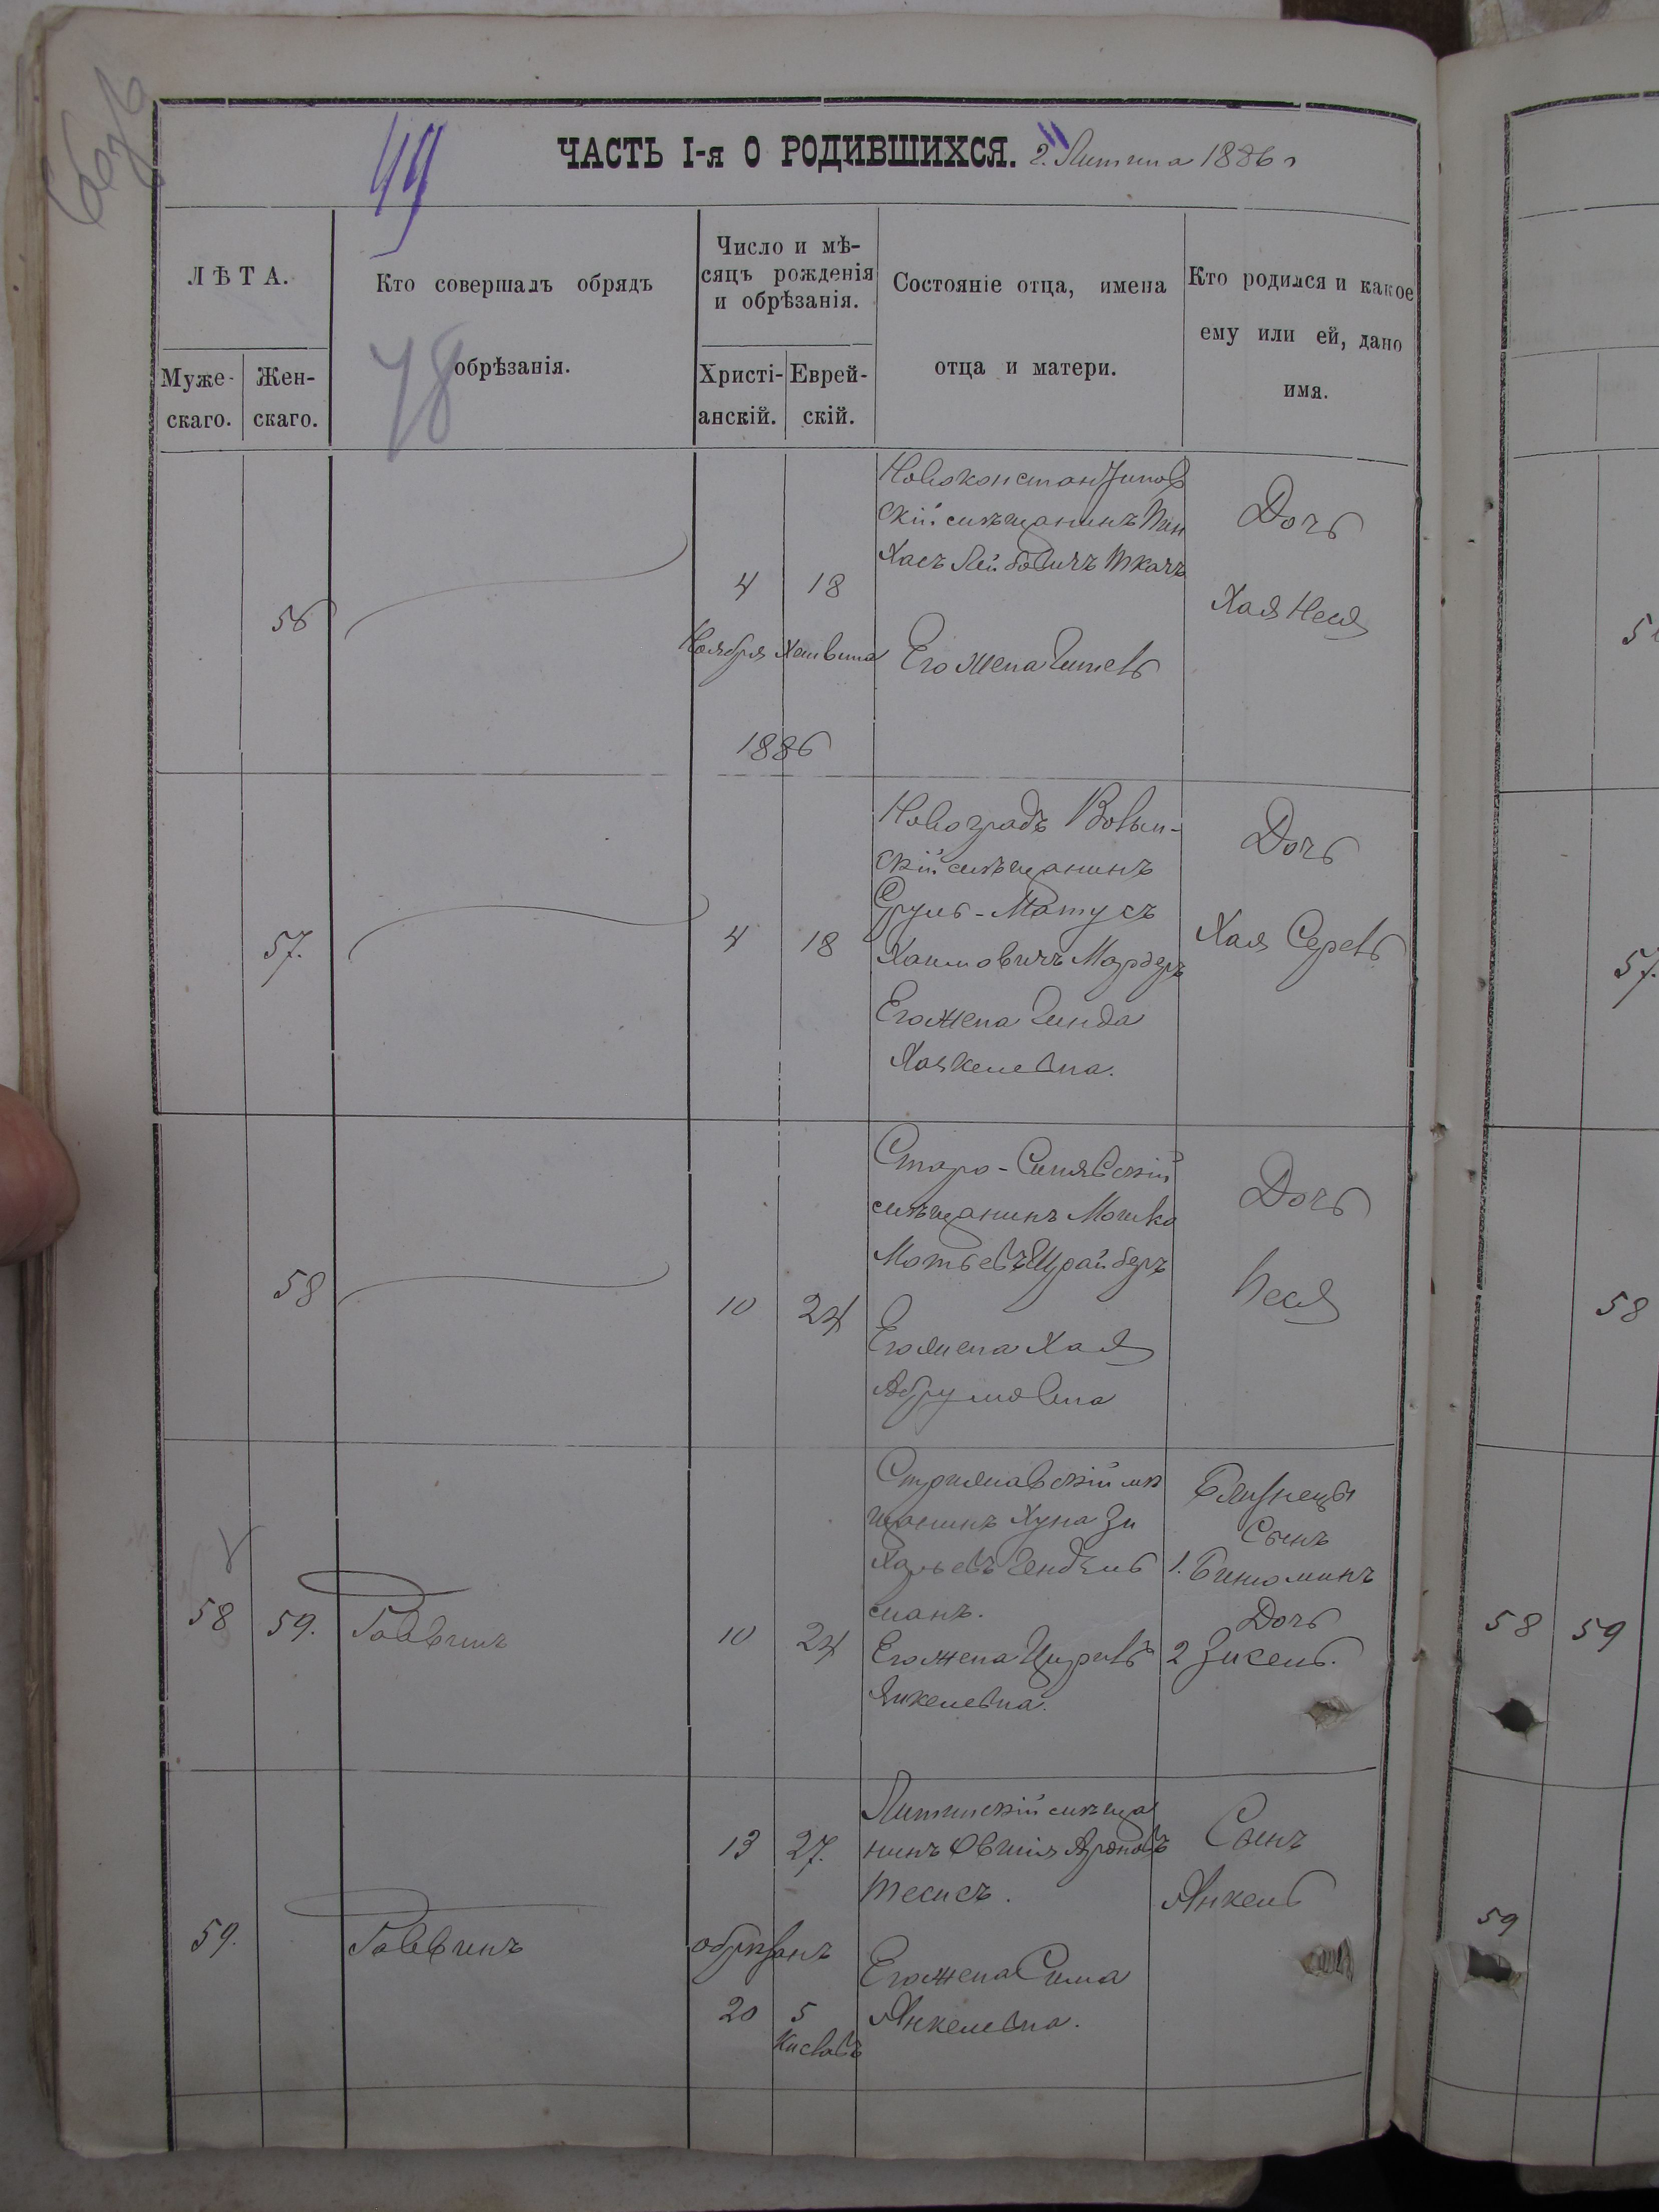 ЧАСТЬ I-я О РОДИВШИХСЯ. 2. Литина 1886 г
49
78
ЛѢТА.
Муже-
скаго.
Жен-
скаго.
Кто совершалъ обрядъ
обрѣзанія.
Число и мѣ-
сяцъ рожденія
и обрѣзанія.
Христі-
анскій.
Еврей-
скій.
Состояніе отца, имена
отца и матери.
Кто родился и какое
ему или ей, дано
имя.
56
4 18
Ноября Хешвина
1886
Новоконстантинов
скій мѣщанинъ Пин
хасъ Лейбовичъ Ткачъ
Его жена
Дочь
Хая Неся
57.
4 18
Новоградъ Волын-
скій мѣщанинъ
Сруль-Матусъ
Хаимовичъ Мардеръ
Его жена Гинда
Хаскелевна.
Дочь
Хая Сурель
58
10 24
Старо-Синявскій
мѣщанинъ Мошко
Мотьевъ Шрайберъ
Его жена Хая
Абрумовна
Дочь
Песя
58 59.
Раввинъ
10 24
мѣ
щанинъ Хуна Зи
Гендель
манъ.
Его жена
Янкелевна.
Близнецы
Сынъ
1. Биньоминъ
Дочь
2 Зисель.
59.
Раввинъ
13 27.
обрѣзанъ
20 5
Кислевъ
Литинскій мѣща
нинъ Овшія Ароновъ
Тесисъ.
Его жена Сима
Янкелевна.
Сынъ
Янкель
57.
58
58 59
59